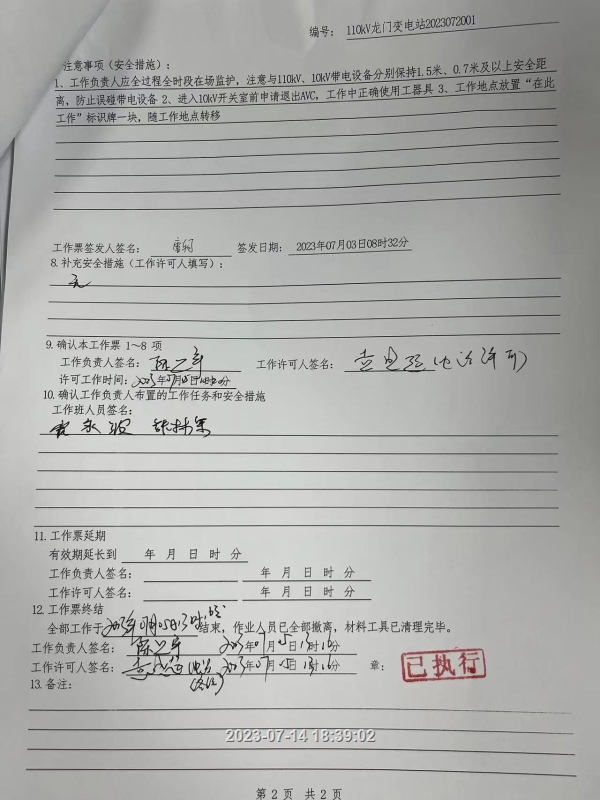 编号： 110kV龙门变电站2023072001
注意事项（安全措施）：
1、工作负责人应全过程全时段在场监护，注意与110kV、10kV带电设备分别保持1.5米、0.7米及以上安全距
离，防止误碰带电设备 2、进入10kV开关室前申请退出AVC，工作中正确使用工器具 3、工作地点放置“在此
工作”标识牌一块，随工作地点转移
工作票签发人签名： 签发日期： 2023年07月03日08时32分
8. 补充安全措施（工作许可人填写）：
无
9. 确认本工作票 1～8 项
工作负责人签名： 工作许可人签名：
许可工作时间： 2023年07月05日 时 分
10. 确认工作负责人布置的工作任务和安全措施
工作班人员签名：
11. 工作票延期
有效期延长到 年 月 日 时 分
工作负责人签名： 年 月 日 时 分
工作许可人签名： 年 月 日 时 分
12. 工作票终结
全部工作于2023年07月05日13时16分结束，作业人员已全部撤离，材料工具已清理完毕。
工作负责人签名： 2023年07月05日13时16分
工作许可人签名： 2023年07月05日13时16分 章： 已执行
13. 备注：
2023-07-14 18:39:02
第 2 页 共 2 页